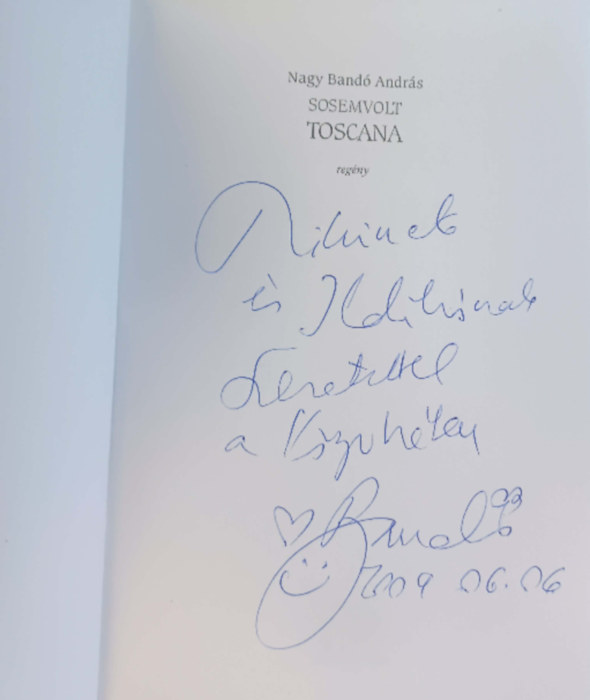 Nagy Bandó András
SOSEMVOLT
TOSCANA
regény
Nikinek
és Ildikónak
szeretettel
a Könyvhéten
Bandó
2009 06.06